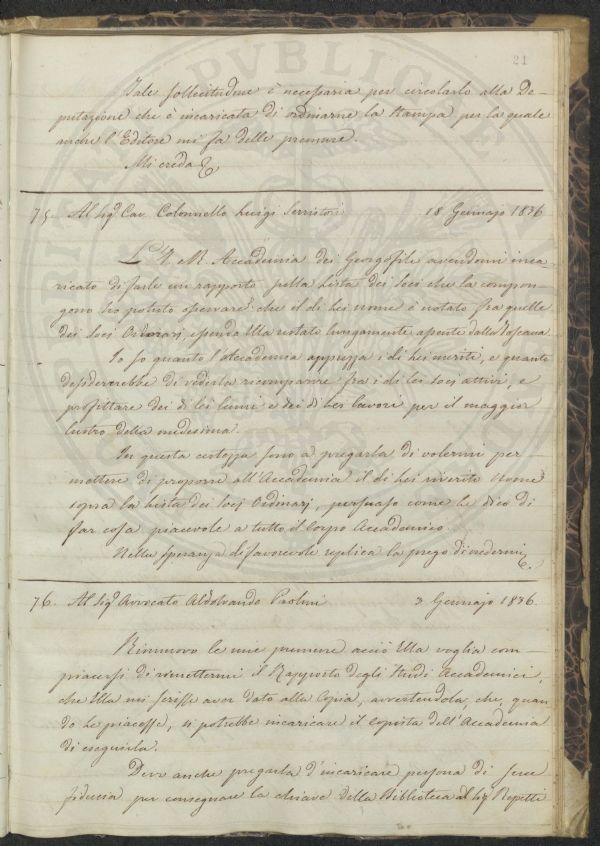 21
Tale sollecitudine è necessaria per circolarlo alla De-
putazione che è incaricata di ordinarne la stampa per la quale
anche l'Editore mi fa delle premure.
Mi creda &
75. Al Sig.r Cav. Colonnello Luigi Serristori 18 Gennajo 1836
L'I. e R. Accademia dei Georgofili avendomi inca-
ricato di farle un rapporto sulla Lista dei Soci che la compon-
gono ho potuto osservare che il di Lei nome è notato fra quelle
dei Soci Onorarj essendo Ella restato lungamente assente dalla Toscana
Io so quanto l'Accademia apprezza i di Lei meriti, e quanto
desidererebbe di vederla ricomparire fra i di lei Soci attivi, e
profittare dei di lei lumi e dei di Lei lavori per il maggior
lustro della medesima.
In questa certezza sono a pregarla di volermi per-
mettere di proporre all'Accademia il di Lei riverito nome
sopra la Lista dei Socj Ordinarj, persuaso come Le dico di
far cosa piacevole a tutto il Corpo Accademico.
Nella speranza di favorevole replica la prego di credermi &.
76. Al Sig.r Avvocato Aldobrando Paolini 3 Gennajo 1836.
Rinnuovo le mie premure acciò Ella voglia com-
piacersi di rimettermi il Rapporto degli Studi Accademici,
che Ella mi scrisse aver dato alla Copia, avvertendola, che, quan-
do Le piacesse, si potrebbe incaricare il Copista dell'Accademia
di eseguirla.
Devo anche pregarla d'incaricare persona di sua
fiducia per consegnare la chiave della Biblioteca al Sig.r Repetti
PVBLICAE